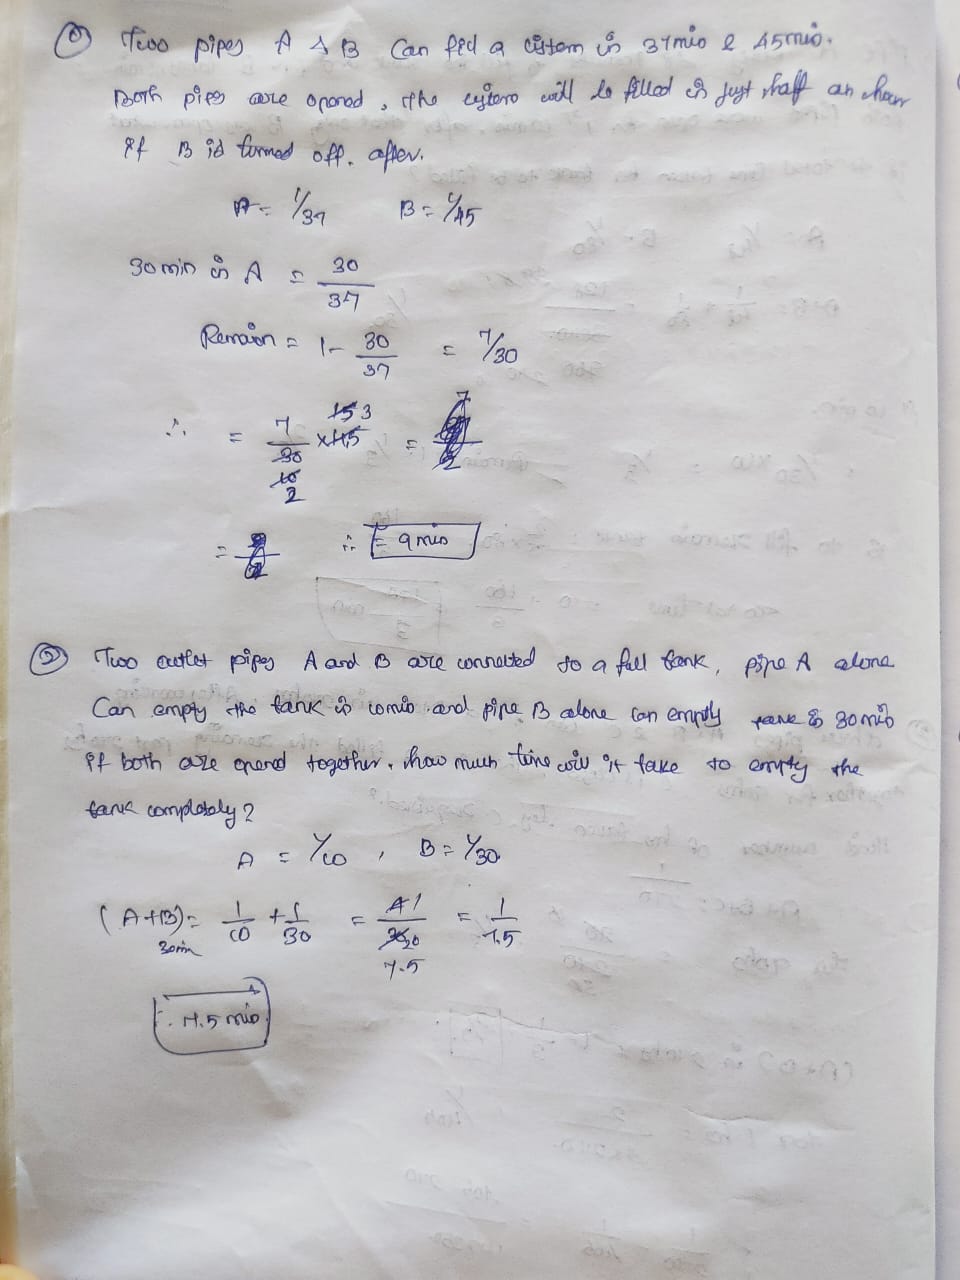 Two pipes A & B Can fill a cistern in 37min & 45min.
Both pipes are opened, the cistern will be filled in just half an hour
if B is turned off. after.
A = 1/37 B = 1/45
30min in A = 30/37
Remain = 1 - 30/37 = 7/30
∴ = 7/30 × 45 =
15 3
10
2
= ∴ = 9 min
② Two outlet pipes A and B are connected to a full tank, pipe A alone
Can empty the tank in 10min and pipe B alone can empty tank is 30min
if both are opend together, how much time will it take to empty the
tank completely?
A = 1/10 , B = 1/30
(A+B) = 1/10 + 1/30 = 41/30 = 1/7.5
30min 7.5
7.5 min